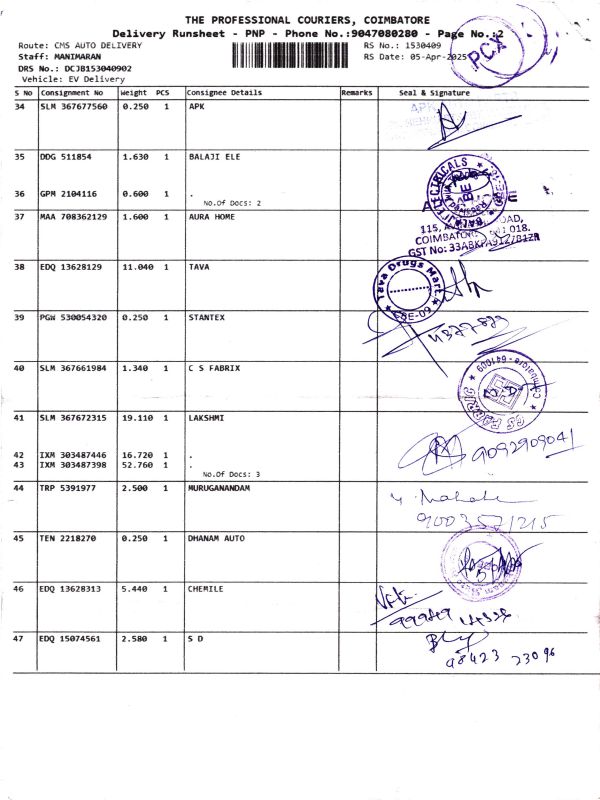 THE PROFESSIONAL COURIERS, COIMBATORE
Delivery Runsheet - PNP - Phone No.:9047080280 - Page No.:2
Route: CMS AUTO DELIVERY
RS No.: 1530409
Staff: MANIMARAN
RS Date: 05-Apr-2025
DRS No.: DCJ8153040902
Vehicle: EV Delivery
PCX
S No Consignment No Weight PCS Consignee Details Remarks Seal & Signature
34 SLM 367677560 0.250 1 APK
APK
35 DDG 511854 1.630 1 BALAJI ELE
BALAJI ELECTRICALS
36 GPM 2104116 0.600 1 .
No.Of Docs: 2
37 MAA 708362129 1.600 1 AURA HOME
115, ROAD,
COIMBATORE 018.
GST No: 33ABKPA9127B1ZR
38 EDQ 13628129 11.040 1 TAVA
Tava Drugs Mart
CBE-09
39 PGW 530054320 0.250 1 STANTEX
40 SLM 367661984 1.340 1 C S FABRIX
Coimbatore - 641009
CS FABRIX
41 SLM 367672315 19.110 1 LAKSHMI
42 IXM 303487446 16.720 1 .
43 IXM 303487398 52.760 1 .
No.Of Docs: 3
9092909041
44 TRP 5391977 2.500 1 MURUGANANDAM
9003571215
45 TEN 2218270 0.250 1 DHANAM AUTO
46 EDQ 13628313 5.440 1 CHEMILE
47 EDQ 15074561 2.580 1 S D
98423 23096